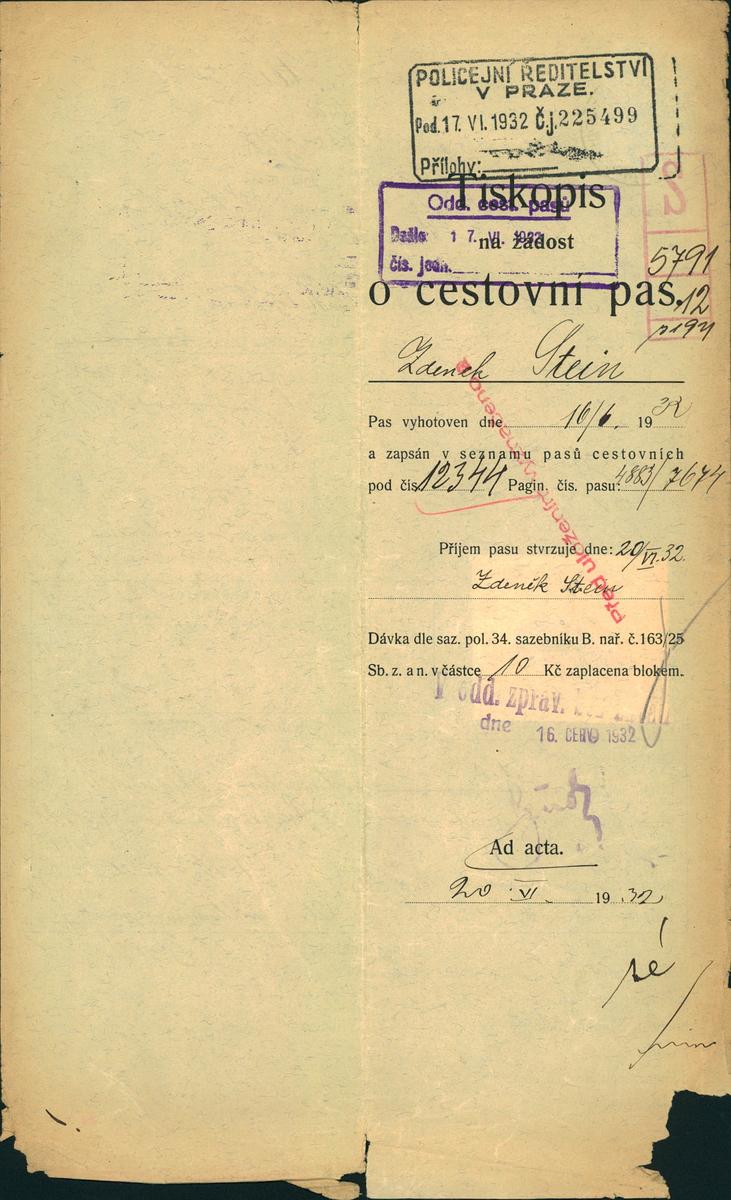 POLICEJNÍ ŘEDITELSTVÍ
V PRAZE.
Pod. 17. VI. 1932 Č.j. 225499
Přílohy:
Tiskopis
Odd. cest. pasů
Došlo 17. VI. 1932
na žádost
čís. jedn.
5791
o cestovní pas.
12
Zdeněk Stein
Pas vyhotoven dne 16/6. 1932
a zapsán v seznamu pasů cestovních
pod čís. 12344 Pagin. čís. pasu: 4883/7674
před uložením vyznačeno
Příjem pasu stvrzuje dne: 20/VI.32.
Zdeněk Stein
Dávka dle saz. pol. 34. sazebníku B. nař. č. 163/25
Sb. z. a n. v částce 10 Kč zaplacena blokem.
V odd. zpráv.
dne 16. ČERV 1932
Ad acta.
20 VI. 1932